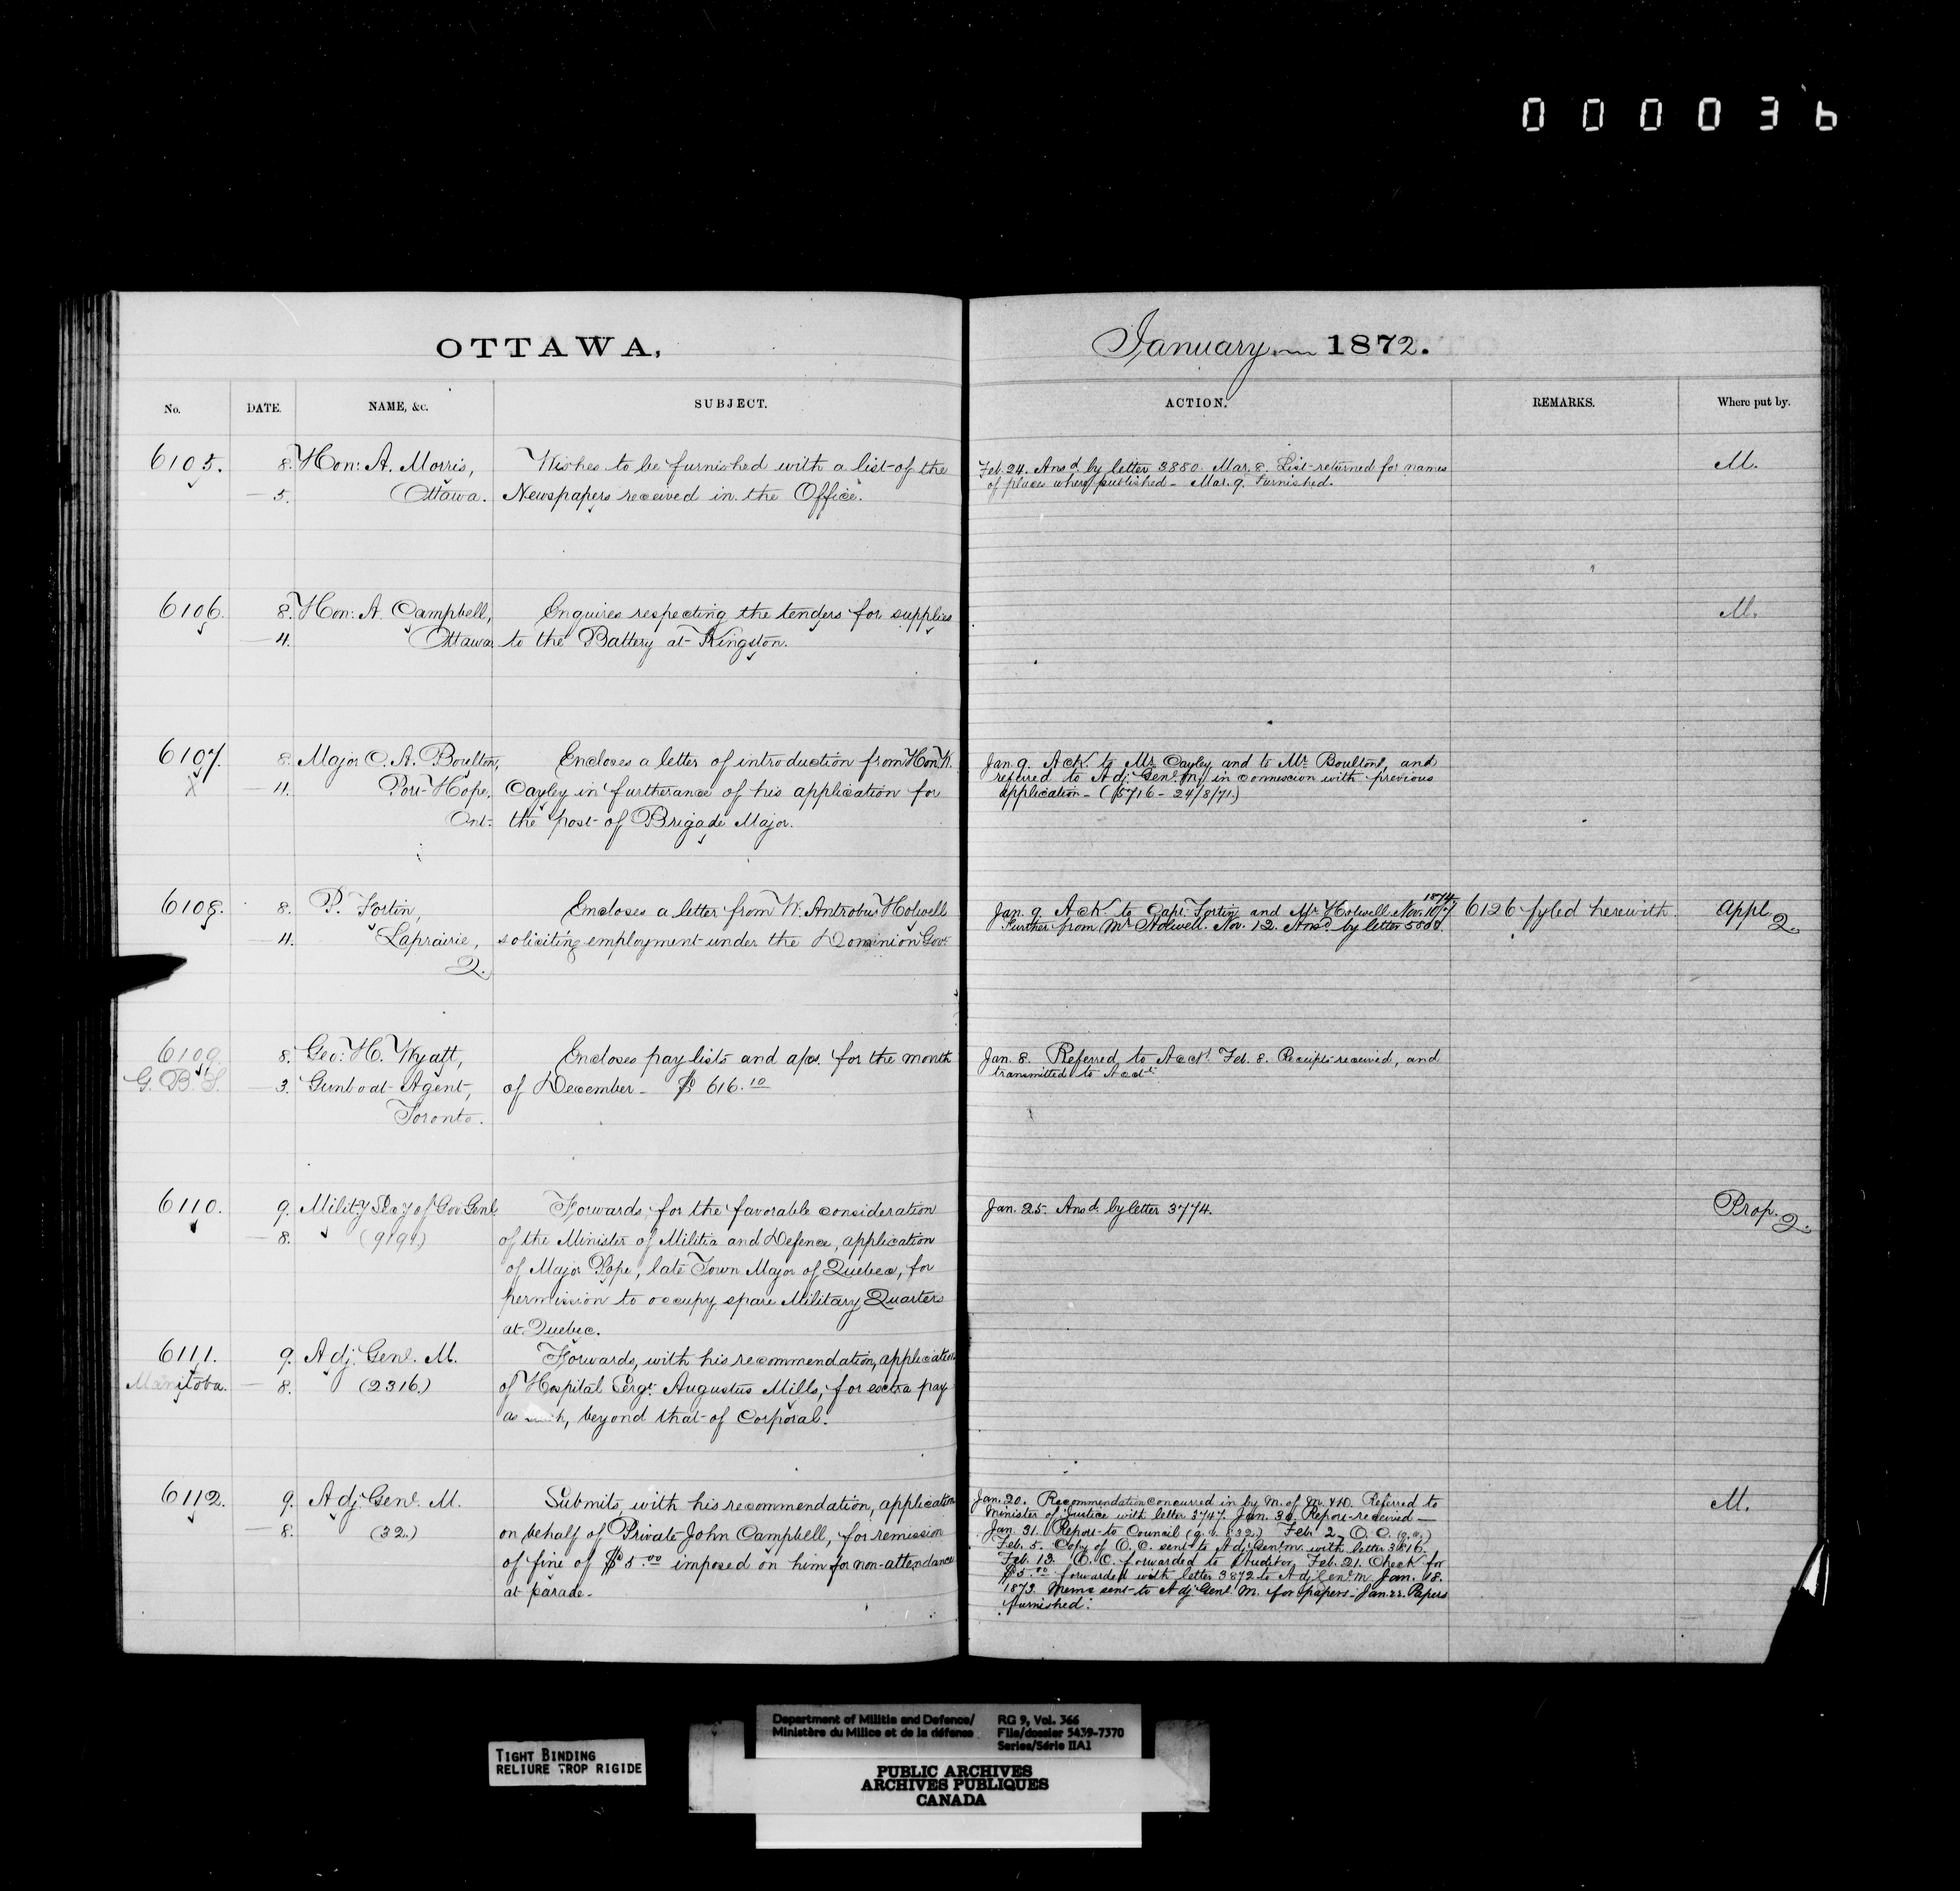 000036
OTTAWA,
No. DATE. NAME, &c. SUBJECT.
6105. 8. Hon: A. Morris, Wishes to be furnished with a list of the
— 5. Ottawa. Newspapers received in the Office.
6106. 8. Hon: A. Campbell, Enquires respecting the tenders for supplies
— 4. Ottawa to the Battery at Kingston.
6107. 8. Major C. A. Boulton, Encloses a letter of introduction from Hon. W.
X — 4. Port Hope, Cayley in furtherance of his application for
Ont: the post of Brigade Major.
6108. 8. P. Fortin, Encloses a letter from W. Antrobus Holwell
— 4. Laprairie, soliciting employment under the Dominion Govt
Q.
6109. 8. Geo: H. Wyatt, Encloses pay lists and a/cs. for the month
G. B. S. — 3. Gunboat Agent, of December — $ 616.10
Toronto.
6110. 9. Milit-y Sec-y of Gov Genl Forwards, for the favorable consideration
— 8. (919) of the Minister of Militia and Defence, application
of Major Pope, late Town Major of Quebec, for
permission to occupy spare Military Quarters
at Quebec.
6111. 9. Adj. Genl. M. Forwards, with his recommendation, application
Manitoba. — 8. (2316.) of Hospital Sergt. Augustus Mills, for extra pay
as such, beyond that of Corporal.
6112. 9. Adj. Genl. M. Submits, with his recommendation, application
— 8. (32.) on behalf of Private John Campbell, for remission
of fine of $5.00 imposed on him for non-attendance
at parade.
January 1872.
ACTION. REMARKS. Where put by.
Feb. 24. Ansd by letter 3880. Mar. 8. List returned for names M.
of places where published — Mar. 9. Furnished.
M.
Jan. 9. Ack to Mr Cayley and to Mr Boulton, and
refered to Adj: Genl. M, in connexion with previous
application — (5716 — 24/8/71.)
1874
Jan. 9. Ack to Capt. Fortin and Mr Holwell. Nov. 10/7 6126 fyled herewith. Appl. Q.
Further from Mr Holwell. Nov. 12. Ansd by letter
Jan. 8. Referred to Acct. Feb. 8. Receipts received, and
transmitted to Acct.
Jan. 25. Ansd. by letter 3774. Prop. Q.
Jan. 20. Recommendation concurred in by M. of M. & D. Referred to M.
Minister of Justice with letter 3747. Jan. 30. Report received —
Jan. 31. Report to Council (q.v. 832.) Feb. 2. O. C. (q.v.)
Feb. 5. Copy of O. C. sent to Adj: Genl. M. with letter 3816.
Feb. 12. O. C. forwarded to Auditor, Feb. 21. Check for
$5.00 forwarded with letter 3872 to Adj. Genl. M. Jan. 18.
1873. Memo sent to Adj. Genl M. for papers — Jan. 22. Papers
furnished.
TIGHT BINDING
RELIURE TROP RIGIDE
Department of Militia and Defence/ RG 9, Vol. 366
Ministère du Milice et de la défense File/dossier 5439-7370
Series/Série IIA1
PUBLIC ARCHIVES
ARCHIVES PUBLIQUES
CANADA